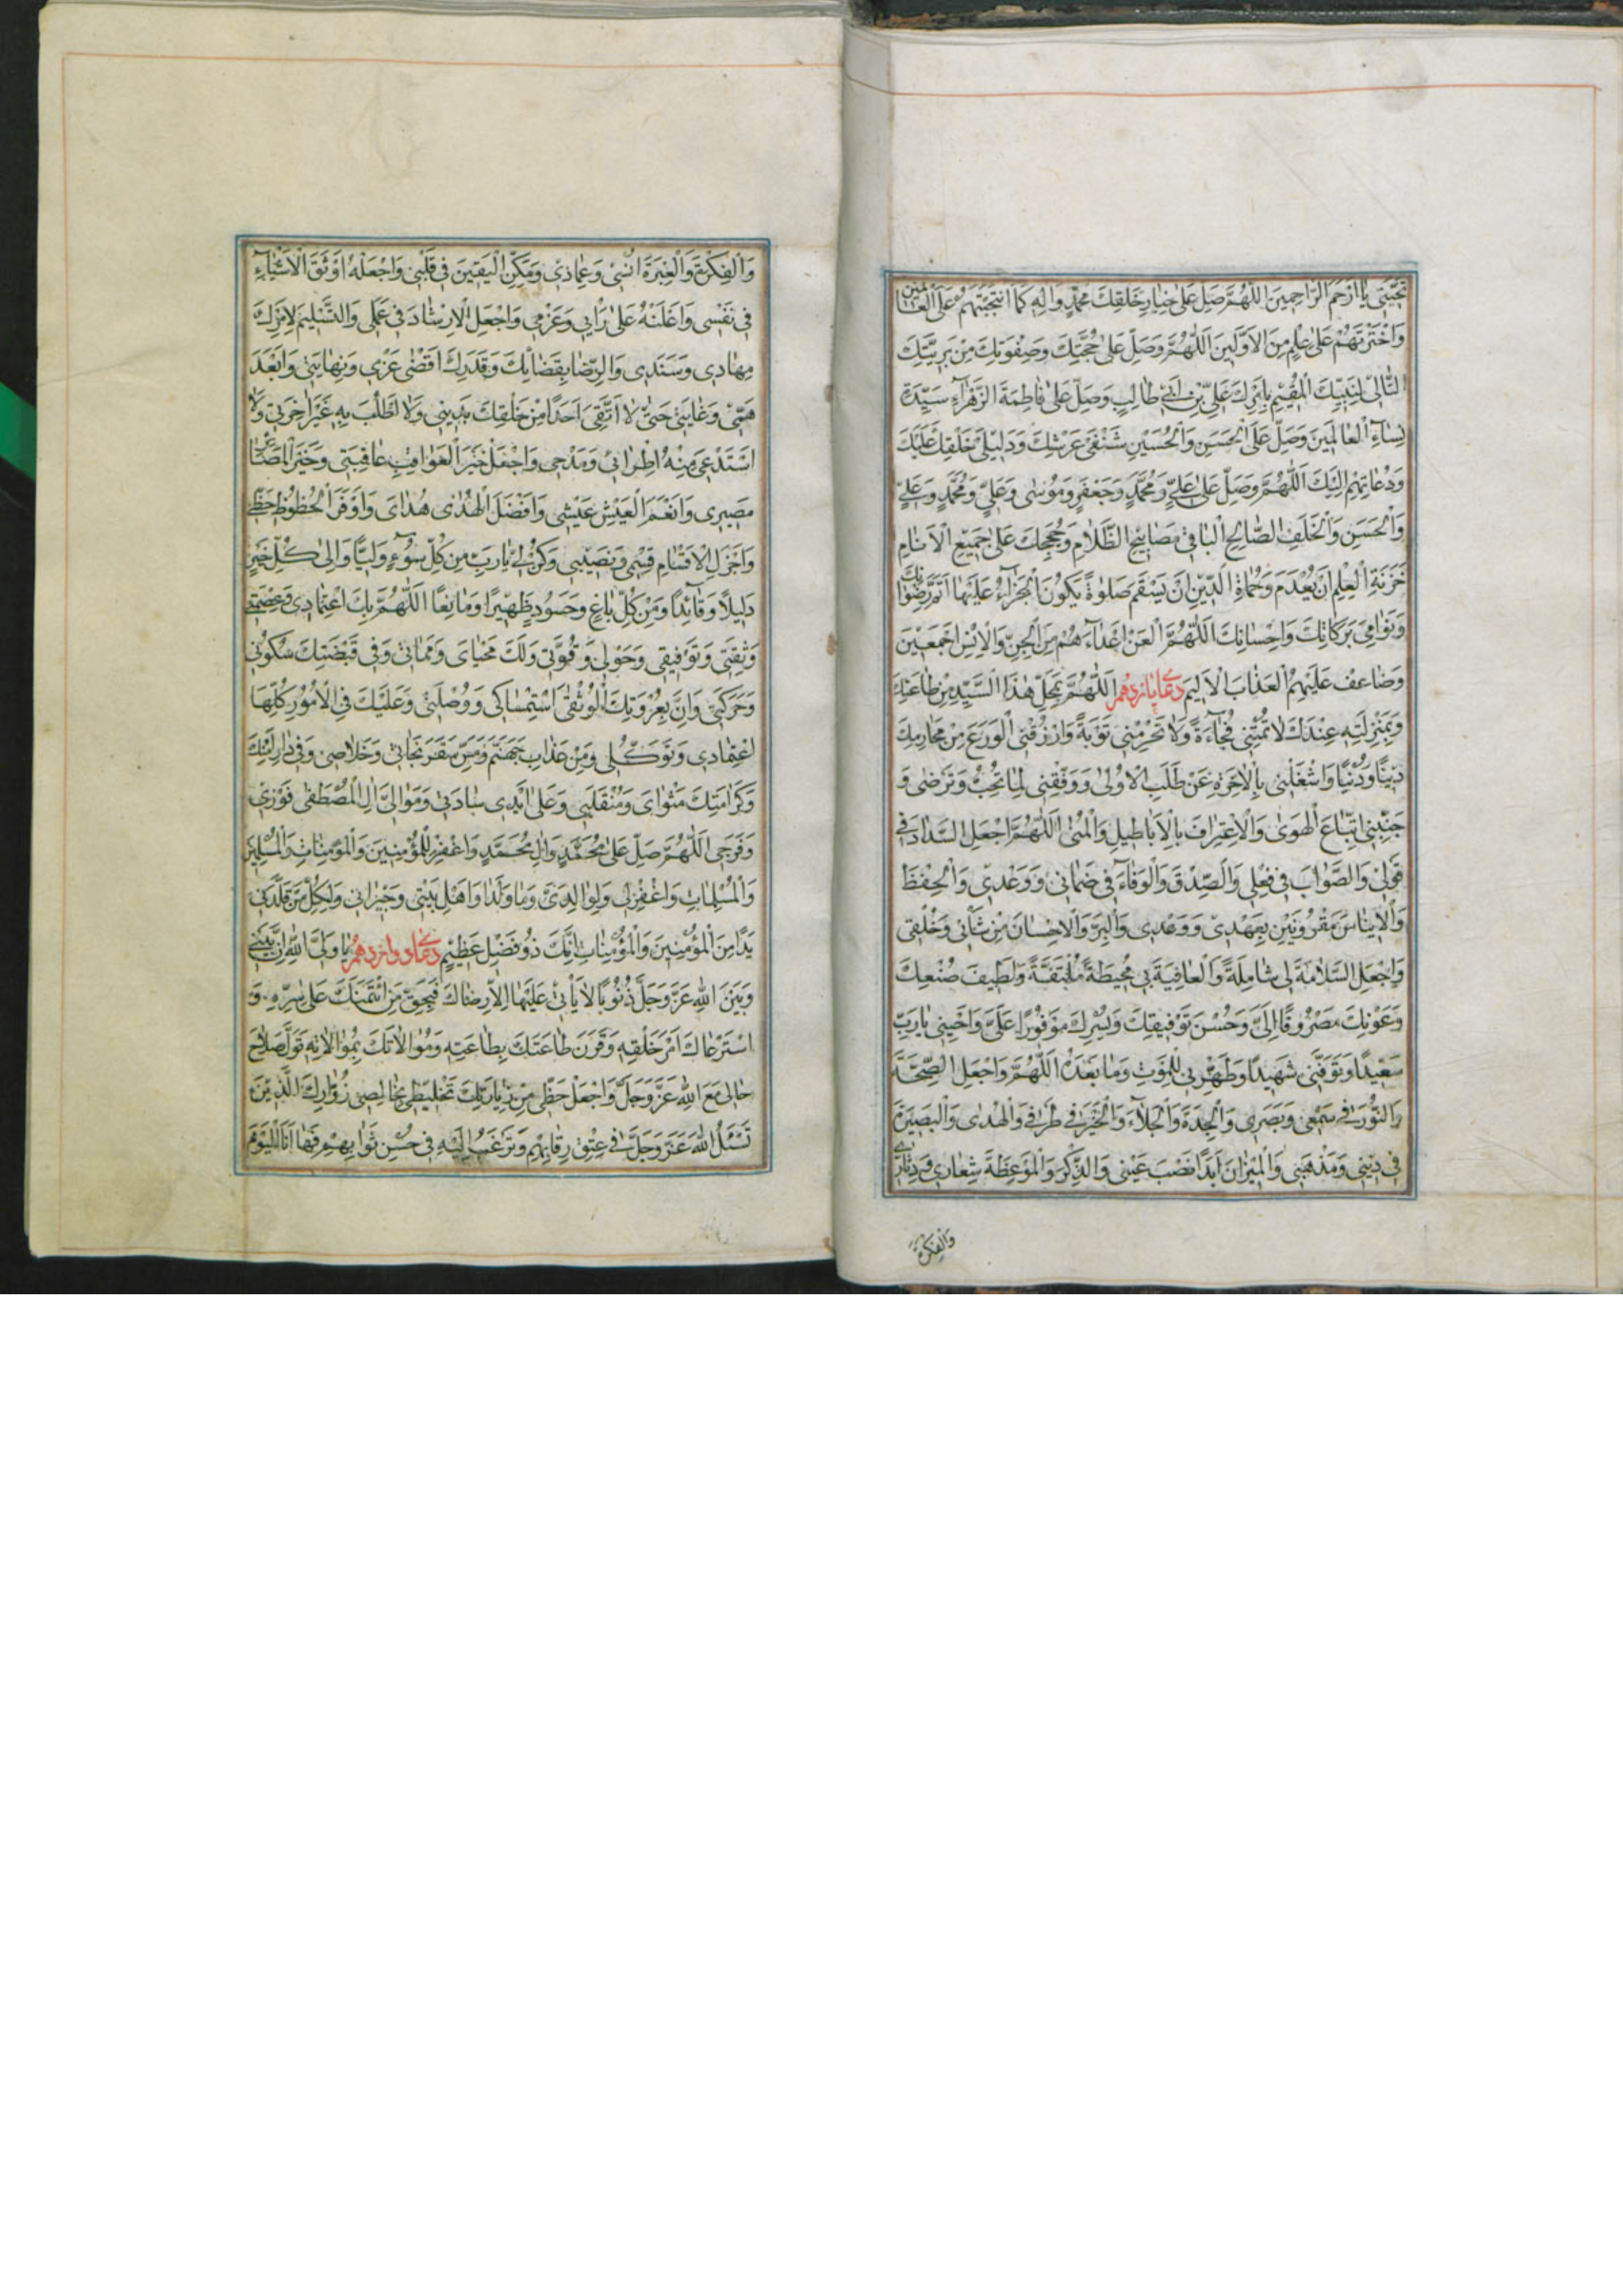 تُحِبَّنِي يَا أَرْحَمَ الرَّاحِمِينَ اَللّٰهُمَّ صَلِّ عَلىٰ خِيَارِ خَلْقِكَ مُحَمَّدٍ وَالِهِ كَمَا انْتَجَبْتَهُمْ عَلَى الْعَالَمِينَ
وَاخْتَرْتَهُمْ عَلىٰ عِلْمٍ مِنَ الْاَوَّلِينَ اَللّٰهُمَّ وَصَلِّ عَلىٰ حُجَّتِكَ وَصِفْوَتِكَ مِنْ بَرِيَّتِكَ
التَّالِي لِنَبِيِّكَ الْمُقِيمِ بِاَمْرِكَ عَلِيِّ بْنِ اَبِي طَالِبٍ وَصَلِّ عَلىٰ فَاطِمَةَ الزَّهْرَاءِ سَيِّدَةِ
نِسَاءِ الْعَالَمِينَ وَصَلِّ عَلَى الْحَسَنِ وَالْحُسَيْنِ شَنْفَيْ عَرْشِكَ وَدَلِيلَيْ خَلْقِكَ عَلَيْكَ
وَدُعَاتِهِمْ اِلَيْكَ اَللّٰهُمَّ وَصَلِّ عَلىٰ عَلِيٍّ وَمُحَمَّدٍ وَجَعْفَرٍ وَمُوسىٰ وَعَلِيٍّ وَمُحَمَّدٍ وَعَلِيٍّ
وَالْحَسَنِ وَالْخَلَفِ الصَّالِحِ الْبَاقِي مَصَابِيحِ الظَّلَامِ وَحُجَجِكَ عَلىٰ جَمِيعِ الْاَنَامِ
خَزَنَةِ الْعِلْمِ اَنْ يُعْدَمَ وَحُمَاةِ الدِّينِ اَنْ يَسْقَمَ صَلوٰةً يَكُونُ الْجَزَاءُ عَلَيْهَا اَتَمَّ رِضْوَانِكَ
وَنَوَامِيَ بَرَكَاتِكَ وَاِحْسَانِكَ اَللّٰهُمَّ الْعَنْ اَعْدَاءَهُمْ مِنَ الْجِنِّ وَالْاِنْسِ اَجْمَعِينَ
وَضَاعِفْ عَلَيْهِمُ الْعَذَابَ الْاَلِيمَ دعای یازدهم اَللّٰهُمَّ بِمَحَلِّ هٰذَا السَّيِّدِ مِنْ طَاعَتِكَ
وَبِمَنْزِلَتِهِ عِنْدَكَ لَا تُمِتْنِي فُجَاءَةً وَلَا تَحْرِمْنِي تَوْبَةً وَارْزُقْنِي الْوَرَعَ مِنْ مَحَارِمِكَ
دِينًا وَدُنْيًا وَاشْغَلْنِي بِالْاٰخِرَةِ عَنْ طَلَبِ الْاُولىٰ وَوَفِّقْنِي لِمَا تُحِبُّ وَتَرْضىٰ وَ
جَنِّبْنِي اتِّبَاعَ الْهَوىٰ وَالْاِعْتِرَافَ بِالْاَبَاطِيلِ وَالْمُنىٰ اَللّٰهُمَّ اجْعَلِ السَّدَادَ فِي
قَوْلِي وَالصَّوَابَ فِي فِعْلِي وَالصِّدْقَ وَالْوَفَاءَ فِي ضَمَانِي وَوَعْدِي وَالْحِفْظَ
وَالْاِينَاسَ مَقْرُونَيْنِ بِعَهْدِي وَوَعْدِي وَالْبِرَّ وَالْاِحْسَانَ مِنْ شَأْنِي وَخُلْقِي
وَاجْعَلِ السَّلَامَةَ لِي شَامِلَةً وَالْعَافِيَةَ بِي مُحِيطَةً مُلْتَفَّةً وَلَطِيفَ صُنْعِكَ
وَعَوْنِكَ مَصْرُوفًا اِلَيَّ وَحُسْنَ تَوْفِيقِكَ وَيُسْرِكَ مَوْفُورًا عَلَيَّ وَاَحْيِنِي يَا رَبِّ
سَعِيدًا وَتَوَفَّنِي شَهِيدًا وَطَهِّرْنِي لِلْمَوْتِ وَمَا بَعْدَهُ اَللّٰهُمَّ وَاجْعَلِ الصِّحَّةَ
وَالنُّورَ فِي سَمْعِي وَبَصَرِي وَالْجِدَةَ وَالْجَلَاءَ وَالْخَيْرَ فِي طُرُقِي وَالْهُدىٰ وَالْبَصِيرَةَ
فِي دِينِي وَمَذْهَبِي وَالْمِيزَانَ اَبَدًا نَصْبَ عَيْنِي وَالذِّكْرَ وَالْمَوْعِظَةَ شِعَارِي وَدِثَارِي
وَالْفِكْرَةَ
وَالْفِكْرَةَ وَالْعِبْرَةَ اُنْسِي وَعِمَادِي وَمَكِّنِ الْيَقِينَ فِي قَلْبِي وَاجْعَلْهُ اَوْثَقَ الْاَشْيَاءِ
فِي نَفْسِي وَاَغْلَبَهُ عَلىٰ رَأْيِي وَعَزْمِي وَاجْعَلِ الْاِرْشَادَ فِي عَمَلِي وَالتَّسْلِيمَ لِاَمْرِكَ
مِهَادِي وَسَنَدِي وَالرِّضَا بِقَضَائِكَ وَقَدَرِكَ اَقْصىٰ عَزْمِي وَنِهَايَتِي وَاَبْعَدَ
هَمِّي وَغَايَتِي حَتّىٰ لَا اَتَّقِيَ اَحَدًا مِنْ خَلْقِكَ بِدِينِي وَلَا اَطْلُبَ بِهِ غَيْرَ اٰخِرَتِي وَلَا
اَسْتَدْعِيَ مِنْهُ اِطْرَائِي وَمَدْحِي وَاجْعَلْ خَيْرَ الْعَوَاقِبِ عَاقِبَتِي وَخَيْرَ الْمَصَائِرِ
مَصِيرِي وَاَنْعَمَ الْعَيْشِ عَيْشِي وَاَفْضَلَ الْهُدىٰ هُدَايَ وَاَوْفَرَ الْحُظُوظِ حَظِّي
وَاَجْزَلَ الْاَقْسَامِ قِسْمِي وَنَصِيبِي وَكُنْ لِي يَا رَبِّ مِنْ كُلِّ سُوءٍ وَلِيًّا وَاِلىٰ كُلِّ خَيْرٍ
دَلِيلًا وَقَائِدًا وَمِنْ كُلِّ بَاغٍ وَحَسُودٍ ظَهِيرًا وَمَانِعًا اَللّٰهُمَّ بِكَ اعْتِمَادِي وَعِصْمَتِي
وَثِقَتِي وَتَوْفِيقِي وَحَوْلِي وَقُوَّتِي وَلَكَ مَحْيَايَ وَمَمَاتِي وَفِي قَبْضَتِكَ سُكُونِي
وَحَرَكَتِي وَاِنَّ بِعُرْوَتِكَ الْوُثْقىٰ اسْتِمْسَاكِي وَوُصْلَتِي وَعَلَيْكَ فِي الْاُمُورِ كُلِّهَا
اعْتِمَادِي وَتَوَكُّلِي وَمِنْ عَذَابِ جَهَنَّمَ وَمَسِّ سَقَرَ نَجَاتِي وَخَلَاصِي وَفِي دَارِ اَمْنِكَ
وَكَرَامَتِكَ مَثْوَايَ وَمُنْقَلَبِي وَعَلىٰ اَيْدِي سَادَتِي وَمَوَالِيَّ اٰلِ الْمُصْطَفىٰ فَوْزِي
وَفَرَجِي اَللّٰهُمَّ صَلِّ عَلىٰ مُحَمَّدٍ وَاٰلِ مُحَمَّدٍ وَاغْفِرْ لِلْمُؤْمِنِينَ وَالْمُؤْمِنَاتِ وَالْمُسْلِمِينَ
وَالْمُسْلِمَاتِ وَاغْفِرْ لِي وَلِوَالِدَيَّ وَمَا وَلَدَا وَاَهْلِ بَيْتِي وَجِيرَانِي وَلِكُلِّ مَنْ قَلَّدَنِي
يَدًا مِنَ الْمُؤْمِنِينَ وَالْمُؤْمِنَاتِ اِنَّكَ ذُو فَضْلٍ عَظِيمٍ دعای دوازدهم يَا وَلِيَّ اللهِ اِنَّ بَيْنِي
وَبَيْنَ اللهِ عَزَّ وَجَلَّ ذُنُوبًا لَا يَأْتِي عَلَيْهَا اِلَّا رِضَاكَ فَبِحَقِّ مَنِ ائْتَمَنَكَ عَلىٰ سِرِّهِ وَ
اسْتَرْعَاكَ اَمْرَ خَلْقِهِ وَقَرَنَ طَاعَتَكَ بِطَاعَتِهِ وَمُوَالَاتَكَ بِمُوَالَاتِهِ تَوَلَّ صَلَاحَ
حَالِي مَعَ اللهِ عَزَّ وَجَلَّ وَاجْعَلْ حَظِّي مِنْ زِيَارَتِكَ تَخْلِيطِي بِخَالِصِي زُوَّارِكَ الَّذِينَ
تَسْئَلُ اللهَ عَزَّ وَجَلَّ فِي عِتْقِ رِقَابِهِمْ وَتَرْغَبُ اِلَيْهِ فِي حُسْنِ ثَوَابِهِمْ فَهَا اَنَا الْيَوْمَ